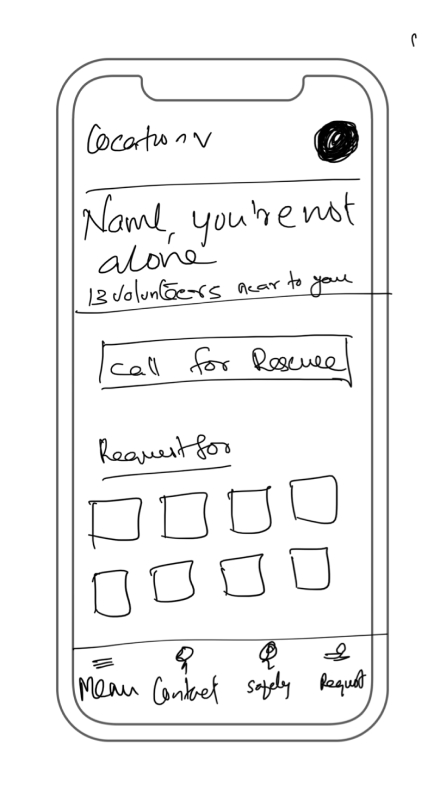 Location v
Name, you're not
alone
13 volunteers near to you
Call for Rescue
Request for
Menu Contact Safety Request